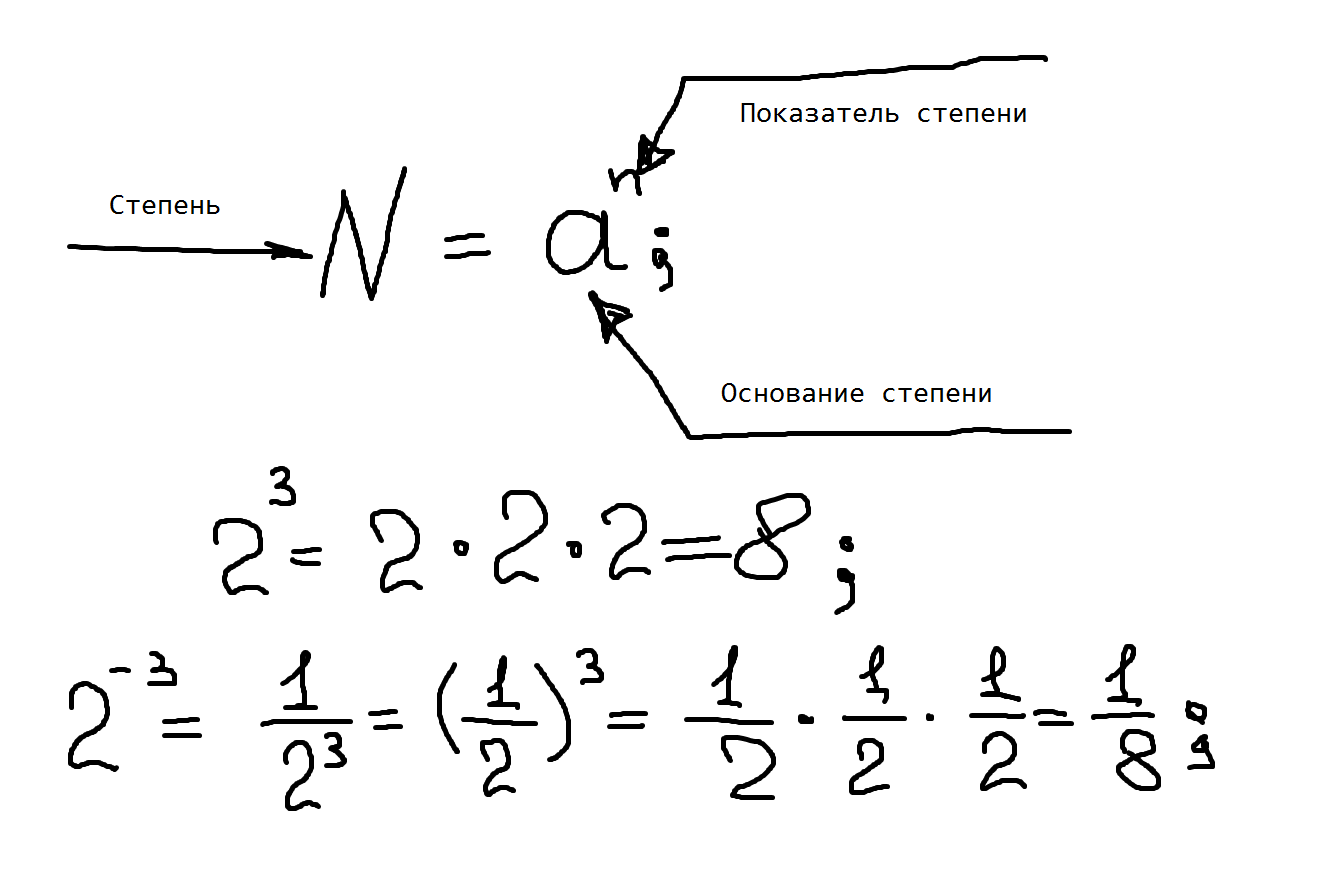 Показатель степени
Степень
N = aⁿ;
Основание степени
2³ = 2 · 2 · 2 = 8;
2⁻³ = 1/2³ = (1/2)³ = 1/2 · 1/2 · 1/2 = 1/8;